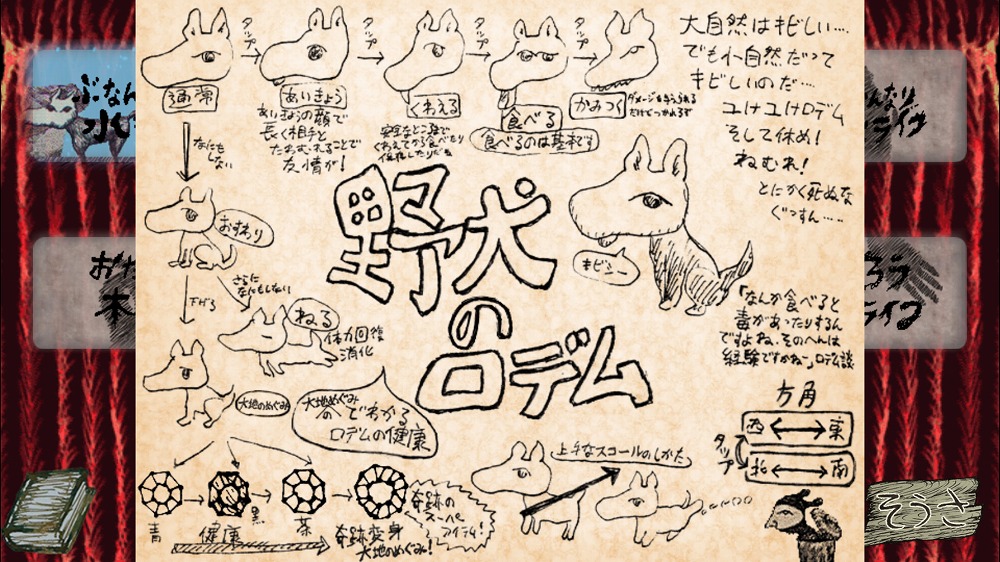 タップ
タップ
タップ
タップ
通常
あいきょう
くわえる
食べる
かみつく
あいきょうの顔で
長く相手と
たわむれることで
友情が!
食べるのは基本です
大自然はキビしい…
でも小自然だって
キビしいのだ…
ユけユけロデム
そして休め!
ねむれ!
とにかく死ぬな
ぐっすん……
なにも
しない
おすわり
さらに
なにもしない
下げる
ねる
体力回復
消化
大地のめぐみ
大地のめぐみ
の
でわかる
ロデムの健康
野犬
の
ロデム
キビシー
「なんか食べると
毒があったりするん
ですよね、そのへんは
経験ですかね」ロデム談
方角
西
東
タップ
北
南
上手なスコールのしかた
青
健康
黒
茶
奇跡変身
大地のめぐみ!
奇跡の
スーパー
アイテム!
ぶなん
水
ライク
ライク
木
そうさ